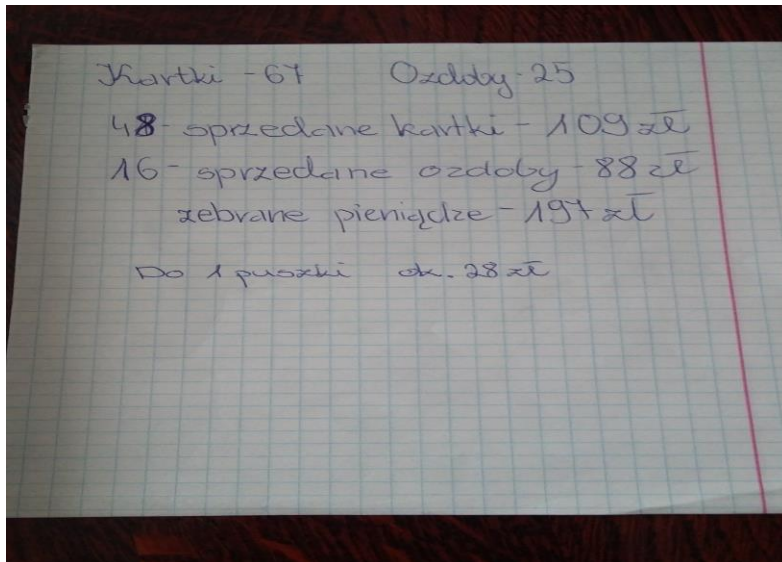 Kartki - 67 Ozdoby - 25
48 - sprzedane kartki - 109 zł
16 - sprzedane ozdoby - 88 zł
zebrane pieniądze - 197 zł
Do 1 puszki ok. 28 zł